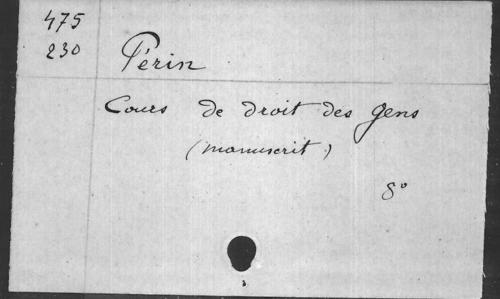 475
230
Périn
Cours de droit des gens
(manuscrit)
8°